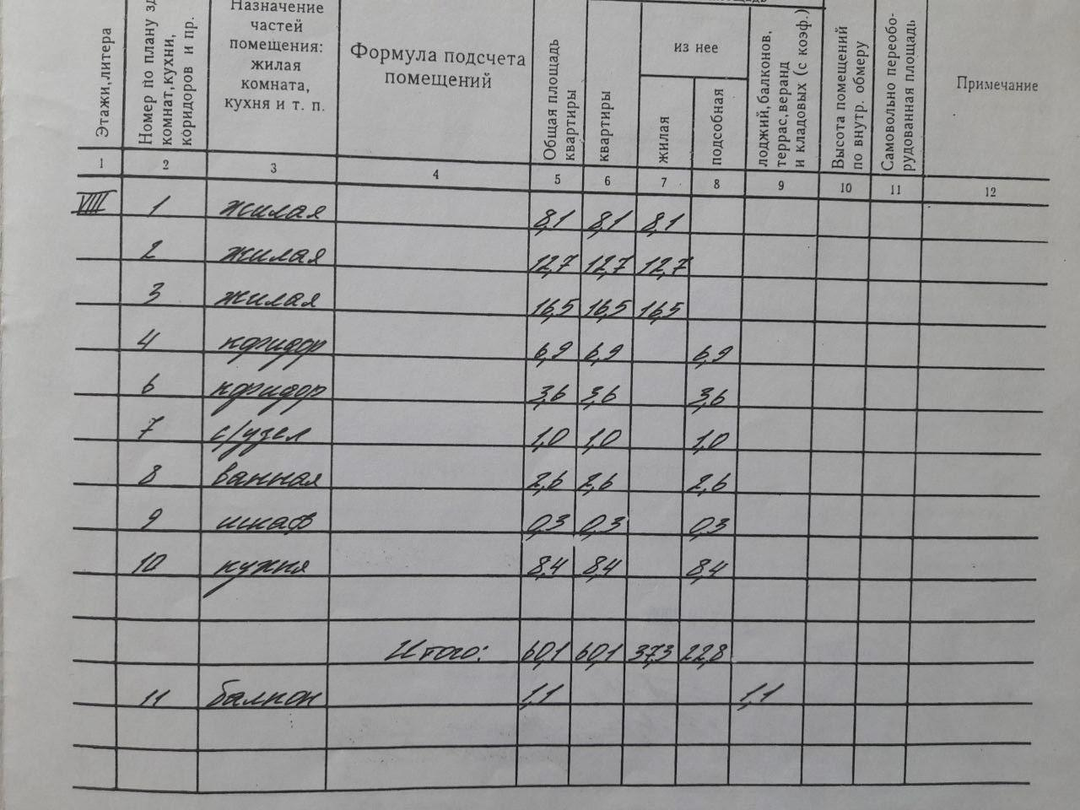 Этажи, литера
Номер по плану
комнат, кухни,
коридоров и пр.
Назначение
частей
помещения:
жилая
комната,
кухня и т. п.
Формула подсчета
помещений
Общая площадь
квартиры
квартиры
из нее
жилая
подсобная
лоджий, балконов,
террас, веранд
и кладовых (с коэф.)
Высота помещений
по внутр. обмеру
Самовольно переобо-
рудованная площадь
Примечание
1 2 3 4 5 6 7 8 9 10 11 12
VIII 1 жилая 8,1 8,1 8,1
2 жилая 12,7 12,7 12,7
3 жилая 16,5 16,5 16,5
4 коридор 6,9 6,9 6,9
6 коридор 3,6 3,6 3,6
7 с/узел 1,0 1,0 1,0
8 ванная 2,6 2,6 2,6
9 шкаф 0,3 0,3 0,3
10 кухня 8,4 8,4 8,4
Итого: 60,1 60,1 37,3 22,8
11 балкон 1,1 1,1